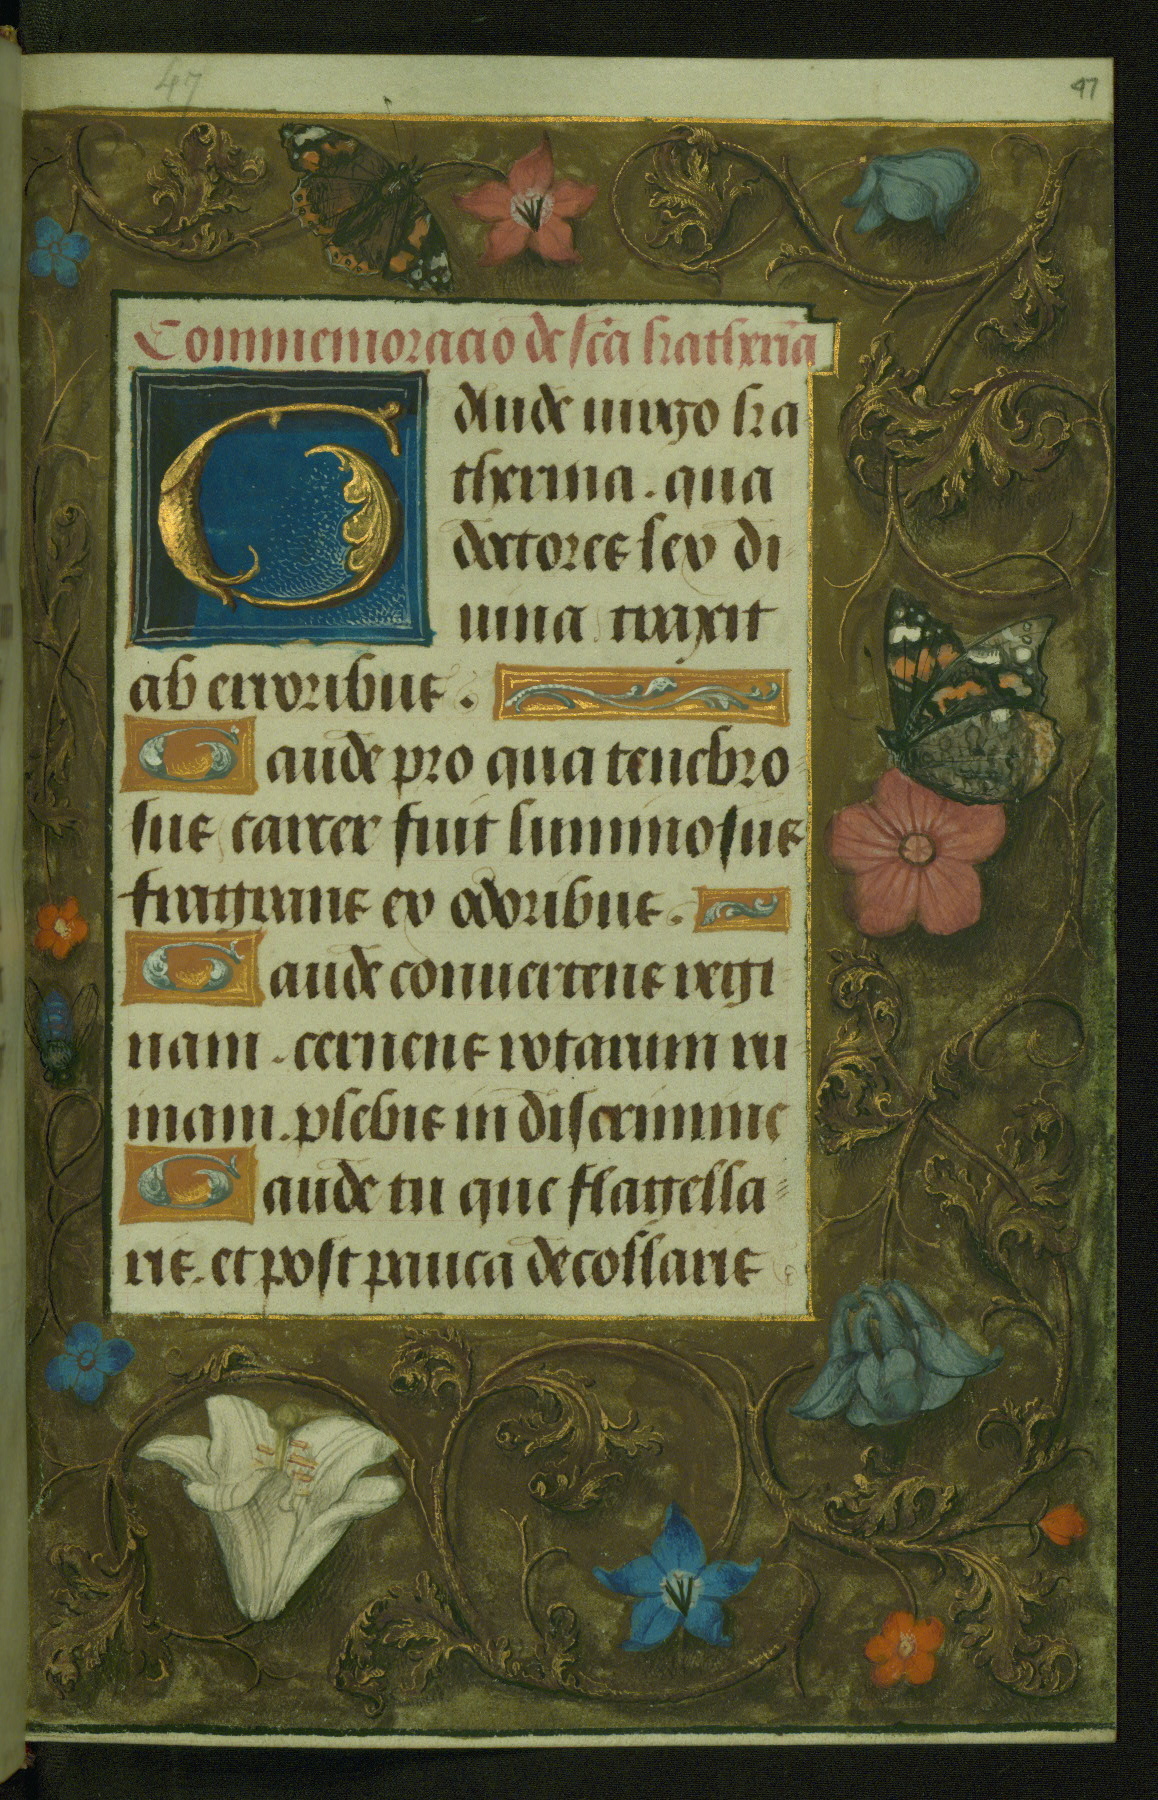 47
47
Commemoracio de sc̄a katherīa
Gaude uirgo ka
therina. qua
doctores lex di-
uina traxit
ab erroribus.
Gaude pro qua tenebro-
sus carcer fuit luminosus
fragrans ex odoribus.
Gaude conuertens regi-
nam. cernens rotarum ru
inam. plebis in discrimine
Gaude tu que flagella-
ris. et post pauca decollaris